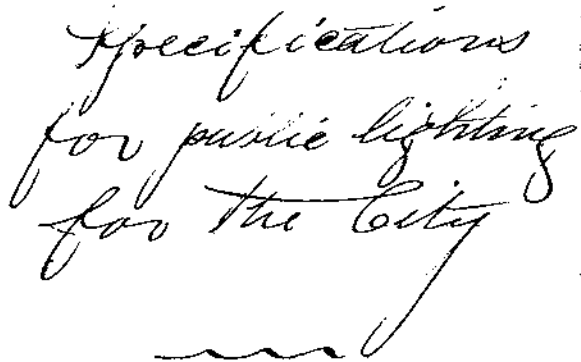 Specifications
for public lighting
for the City